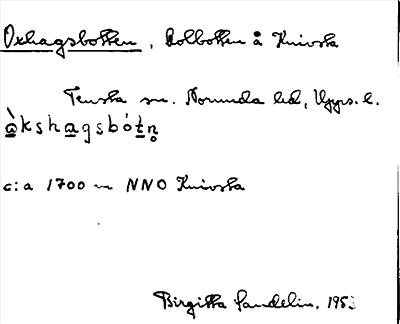 Oxhagsbotten, Kolbotten å Knivsta
Tensta sn. Norunda hd, Upps. l.
àkshagsbótn̥
c:a 1700 m NNO Knivsta
Birgitta Sandelin. 195